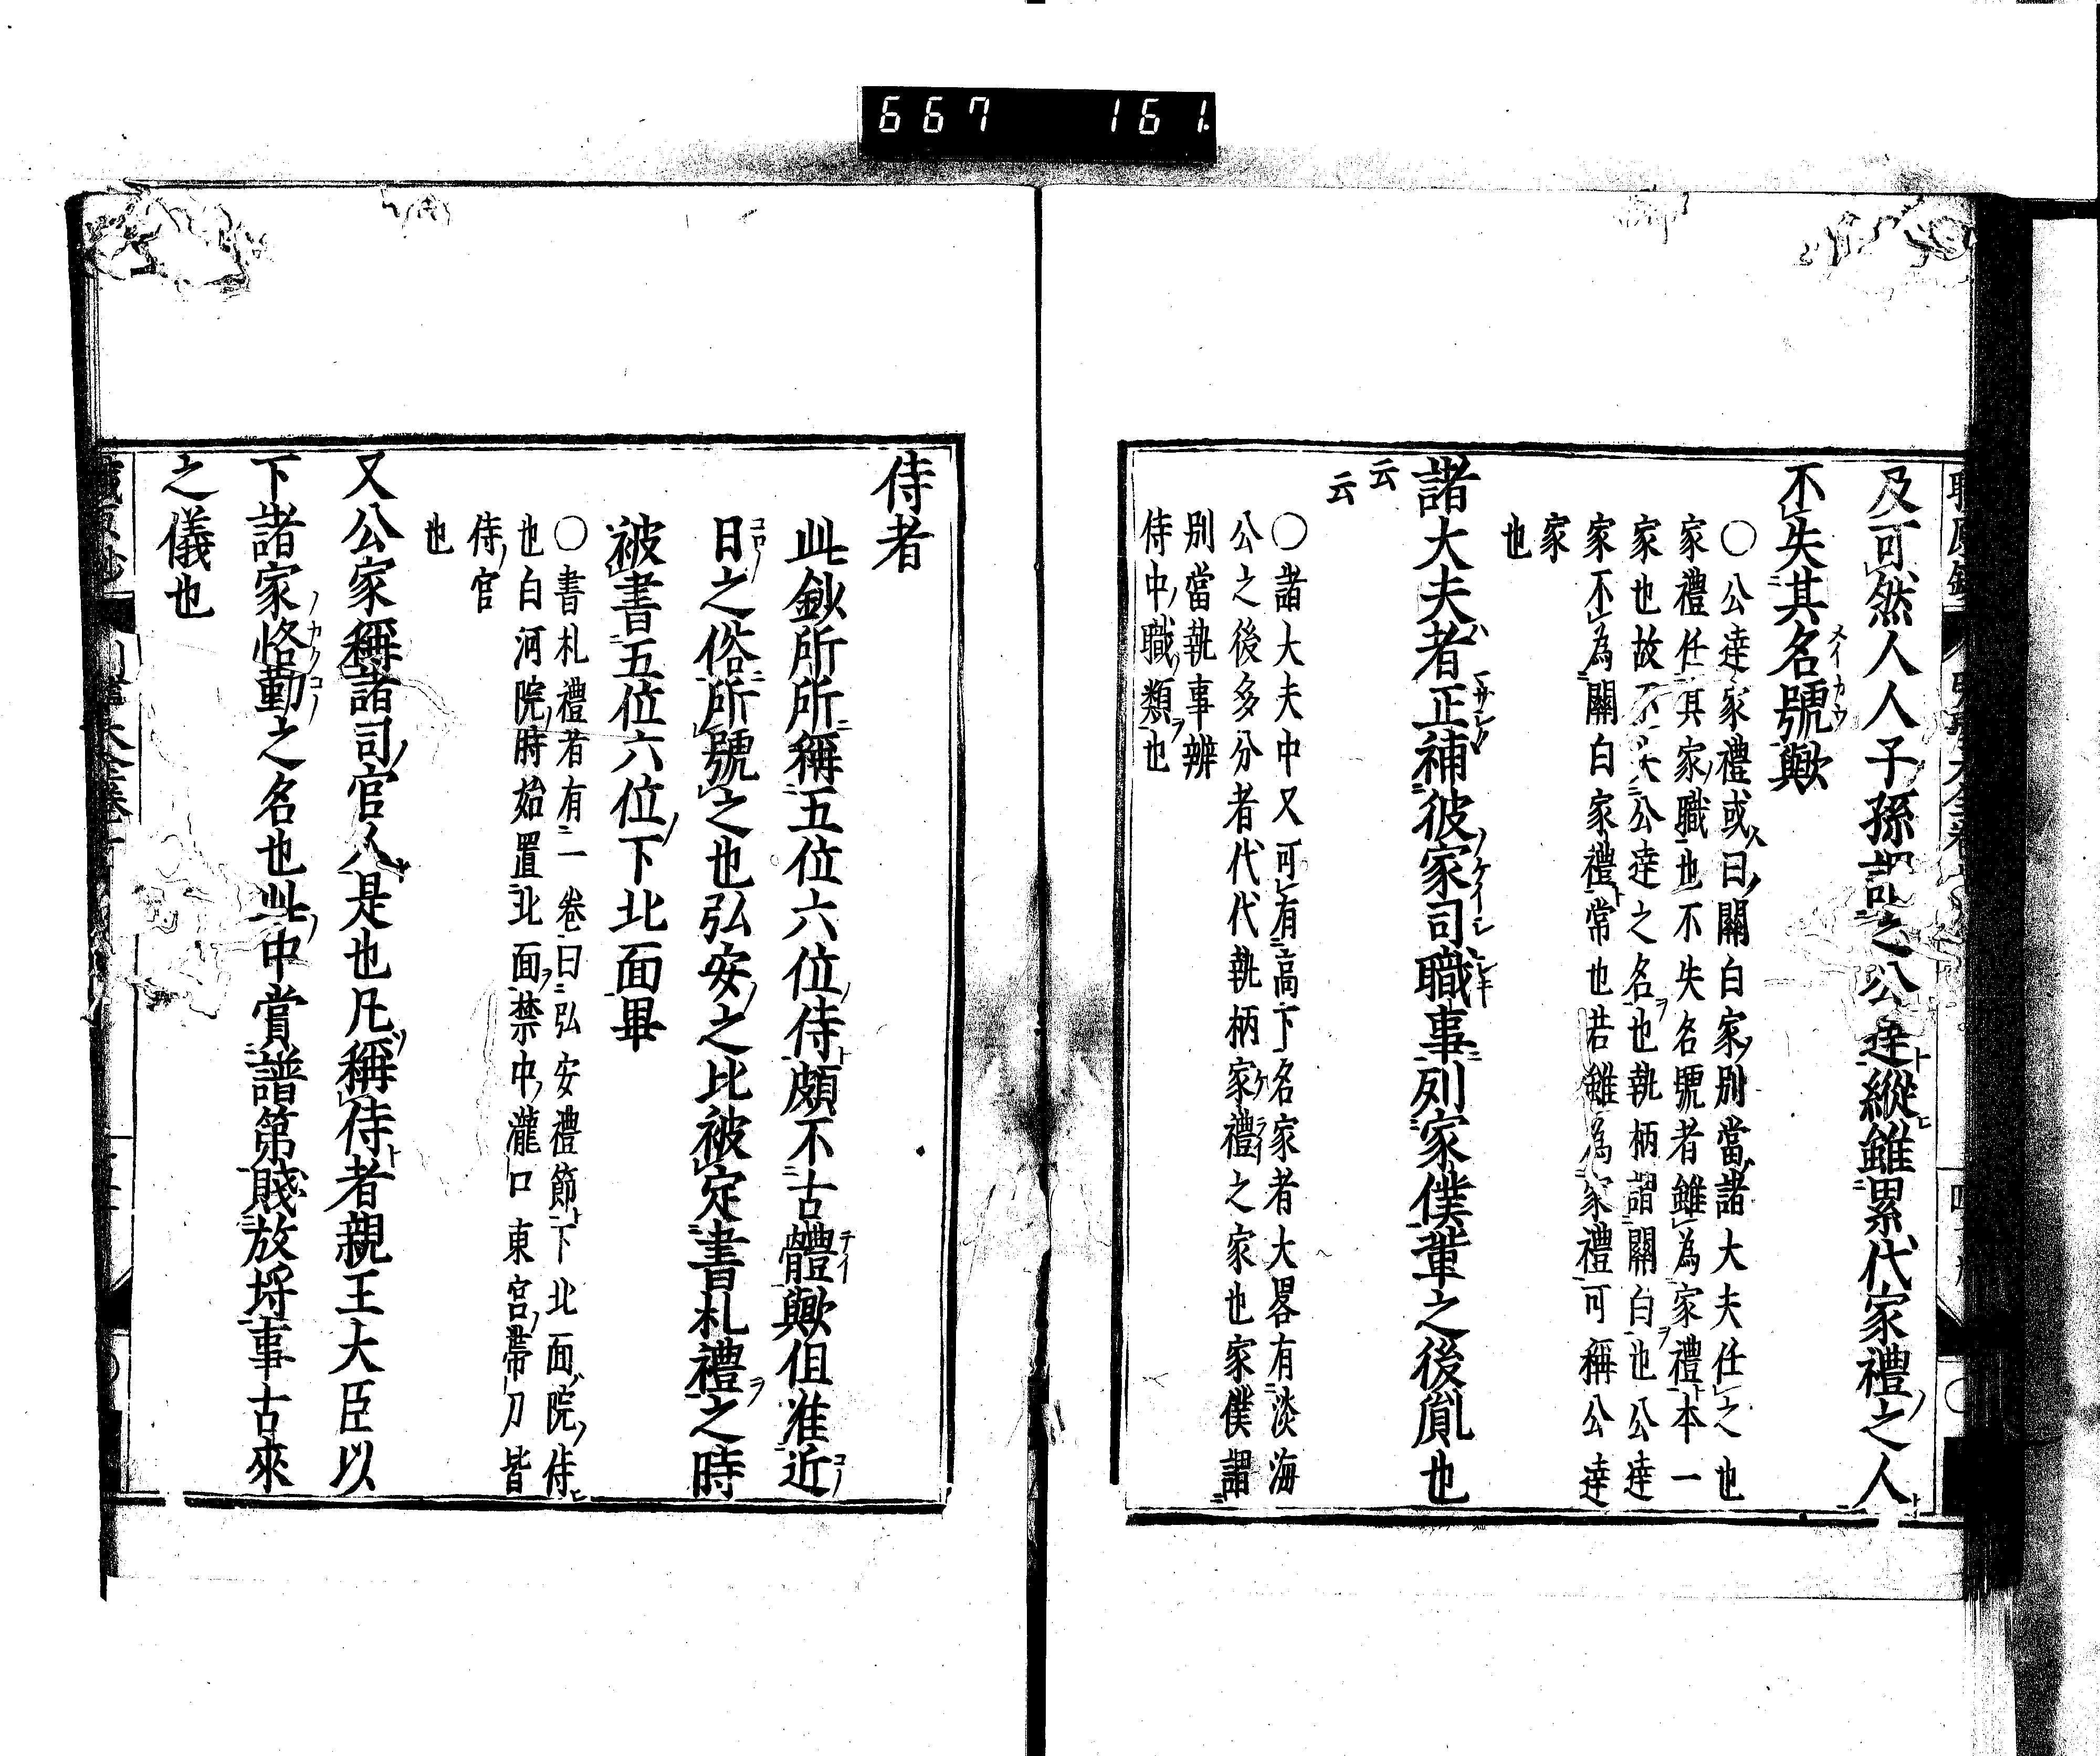 667 161.
及可然人人子孫謂之公達縱雖累代家禮之人
不失其名號歟
○公達家禮或曰關白家別當諸大夫任之也
家禮任其家職也不失名號者雖為家禮本一
家也故不失公達之名也執柄謂關白也公達
家不為關白家禮常也若雖為家禮可稱公達
家
也
諸大夫者正補彼家司職事列家僕輩之後胤也
云
云
○諸大夫中又可有高下名家者大畧有淡海
公之後多分者代代執柄家禮之家也家僕謂
別當執事辨
侍中職類也
侍者
此鈔所所稱五位六位侍頗不古體歟但准近
日之俗所號之也弘安之比被定書札禮之時
被書五位六位下北面畢
○書札禮者有一卷曰弘安禮節下北面院侍
也白河院時始置北面禁中瀧口東宮帶刀皆
侍官
也
又公家稱諸司官人是也凡稱侍者親王大臣以
下諸家恪勤之名也此中賞譜第賤放埒事古來
之儀也